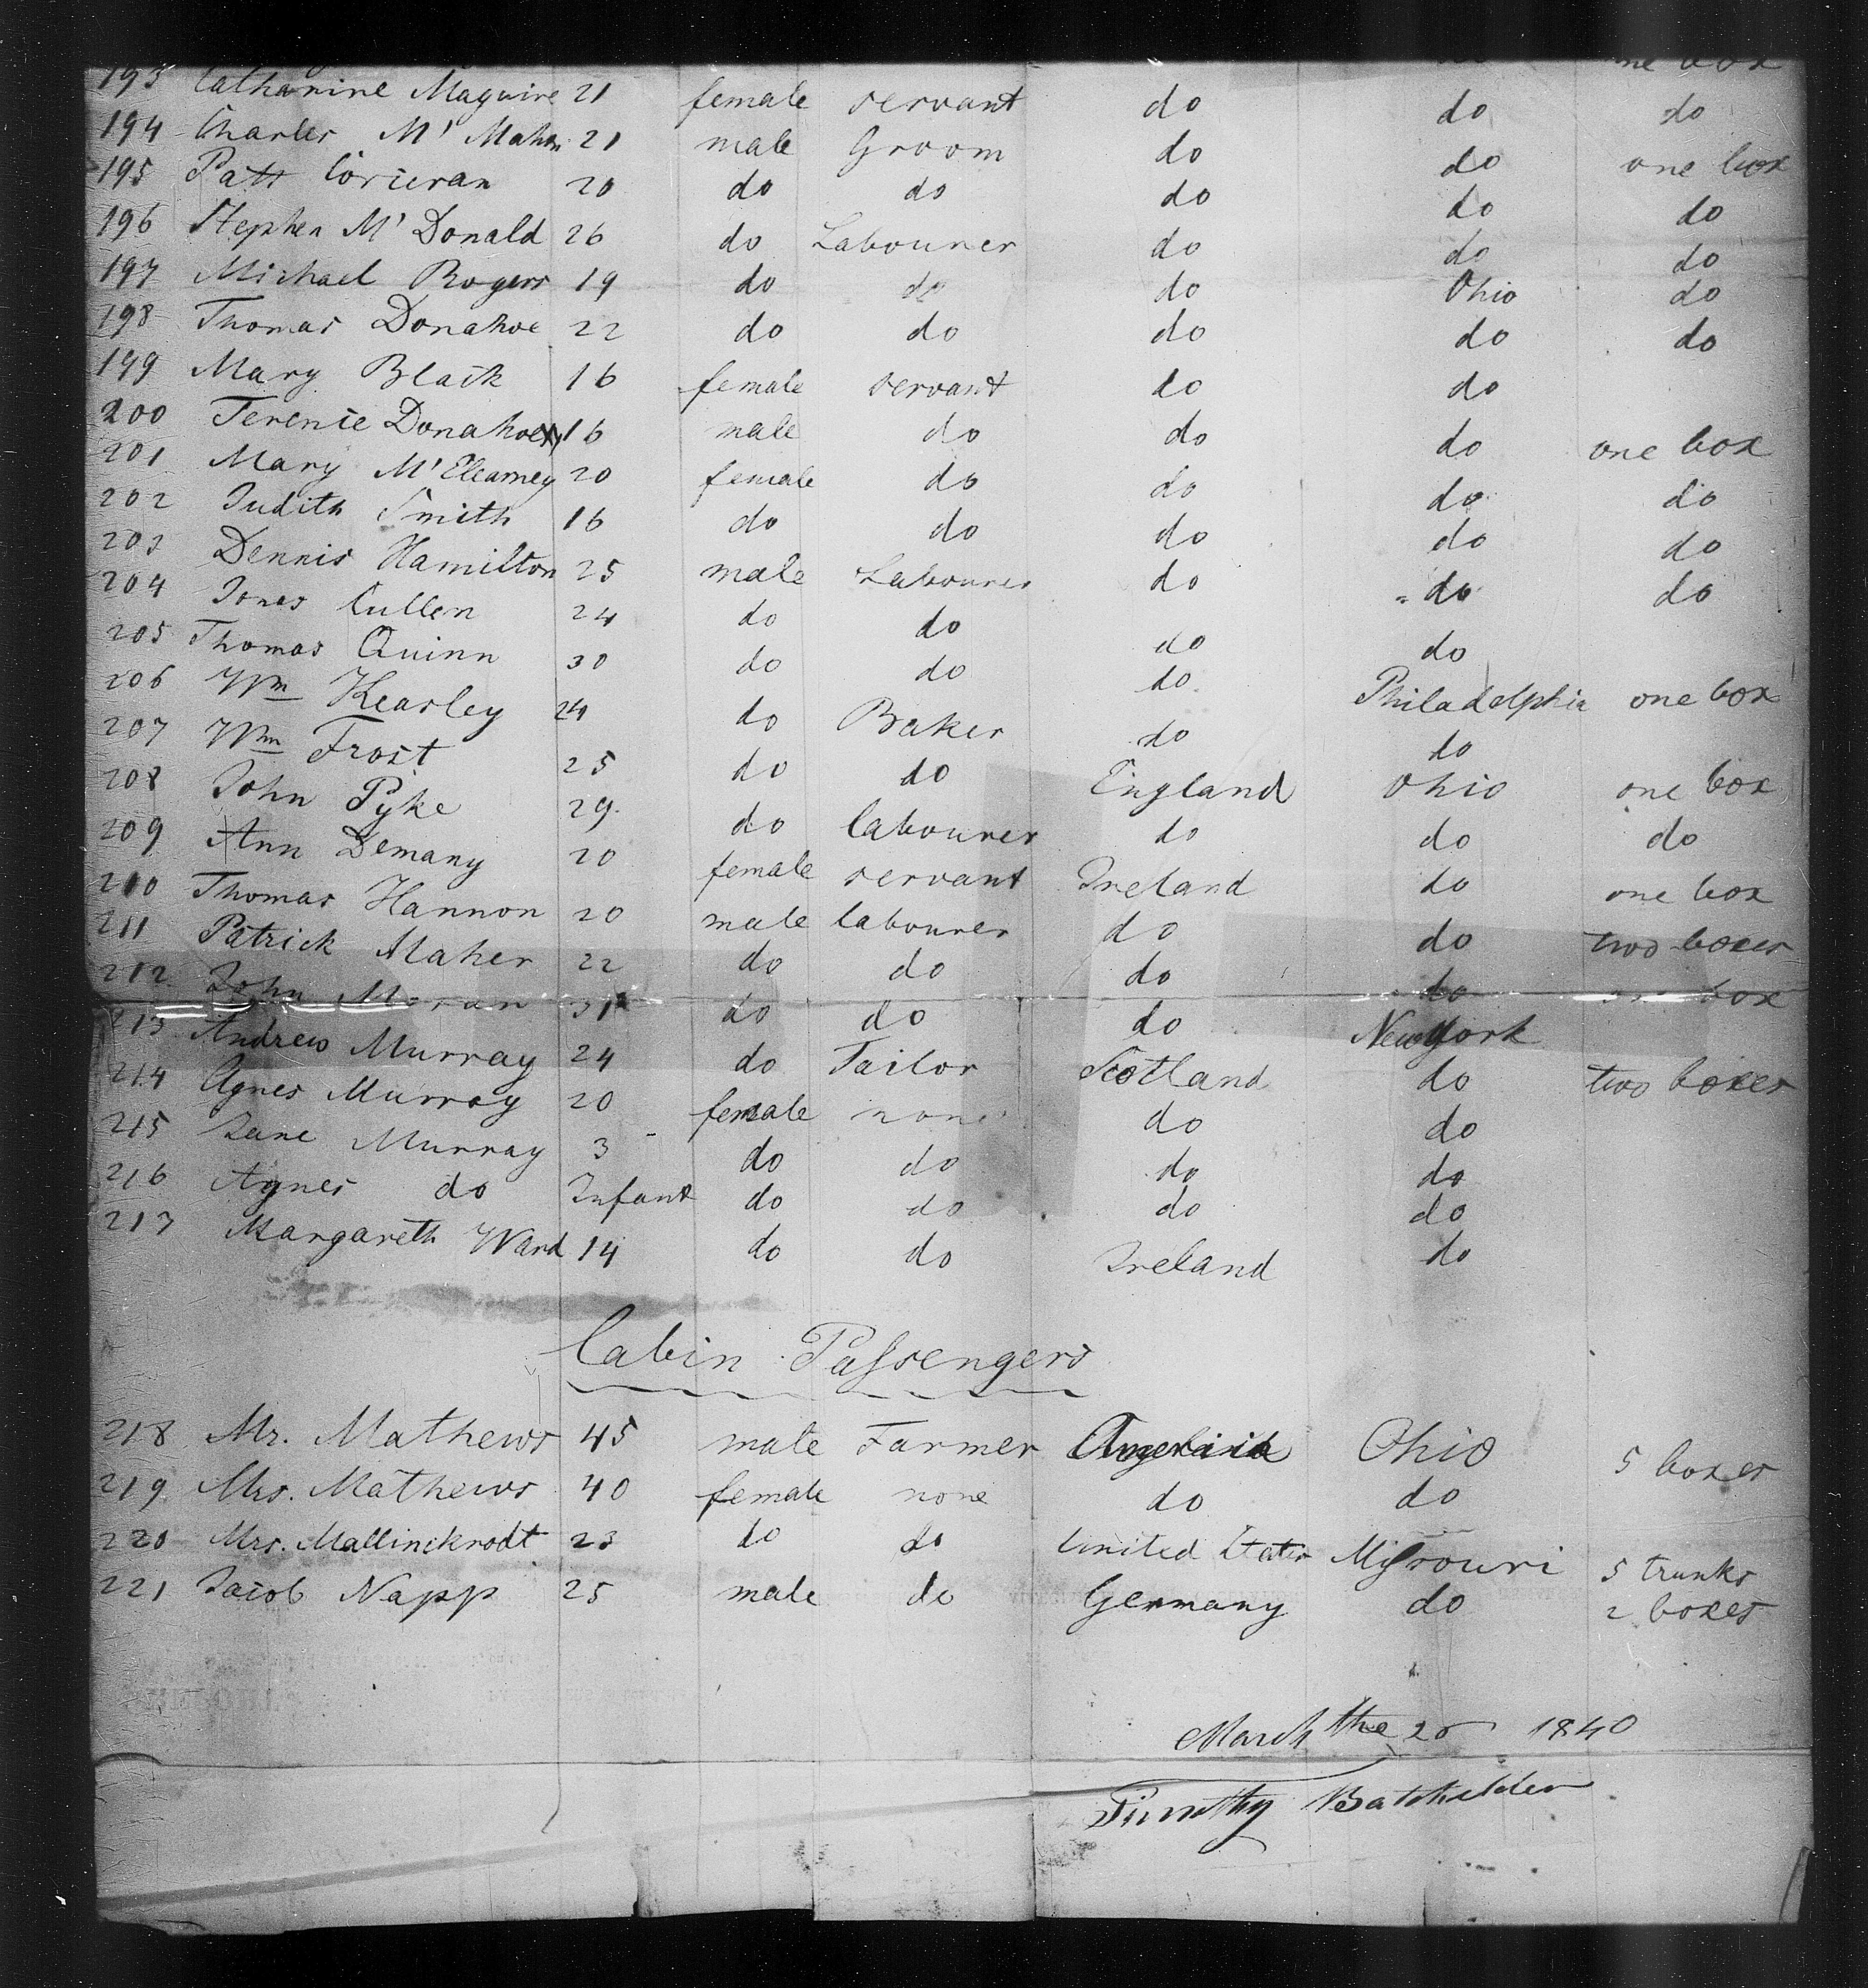 one box
193 Catharine Maguire 21 female servant do do do
194 Charles Mc Mahon 21 male Groom do do one box
195 Patt Corcoran 20 do do do do do
196 Stephen Mc Donald 26 do Labourer do do do
197 Michael Rogers 19 do do do Ohio do
198 Thomas Donahoe 22 do do do do do
199 Mary Black 16 female servant do do
200 Terence Donahoe 16 male do do do one box
201 Mary Mc Elearney 20 female do do do do
202 Judith Smith 16 do do do do do
203 Dennis Hamilton 25 male Labourer do do do
204 Jones Cullen 24 do do do do
205 Thomas Quinn 30 do do do Philadelphia one box
206 Wm Kearley 24 do Baker do do
207 Wm Frost 25 do do England Ohio one box
208 John Pyke 29 do labourer do do do
209 Ann Demany 20 female servant Ireland do one box
210 Thomas Hannon 20 male labourer do do two boxes
211 Patrick Maher 22 do do do do one box
212 John Moran 31 do do do New York
213 Andrew Murray 24 do Tailor Scotland do two boxes
214 Agnes Murray 20 female none do do
215 Jane Murray 3 do do do do
216 Agnes do Infant do do do do
217 Margareth Ward 14 do do Ireland do
Cabin Passengers
218 Mr. Mathews 45 male Farmer Ohio 5 boxes
219 Mrs. Mathews 40 female none do do
220 Mrs. Mallinckrodt 23 do do United States Missouri 5 trunks
221 Jacob Napp 25 male do Germany do 2 boxes
March the 20 1840
Timothy Batchelder